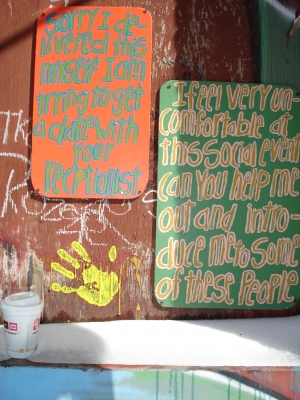 Sorry I de
livered this
myself I am
trying to get
a date with
your
receptionist.
I feel very un-
comfortable at
this social event
can you help me
out and intro-
duce me to some
of these people